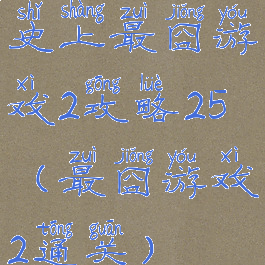 shǐ shàng zuì jiǒng yóu
史上最囧游
xì gōng lüè
戏2攻略25
zuì jiǒng yóu xì
（最囧游戏
tōng guān
2通关）